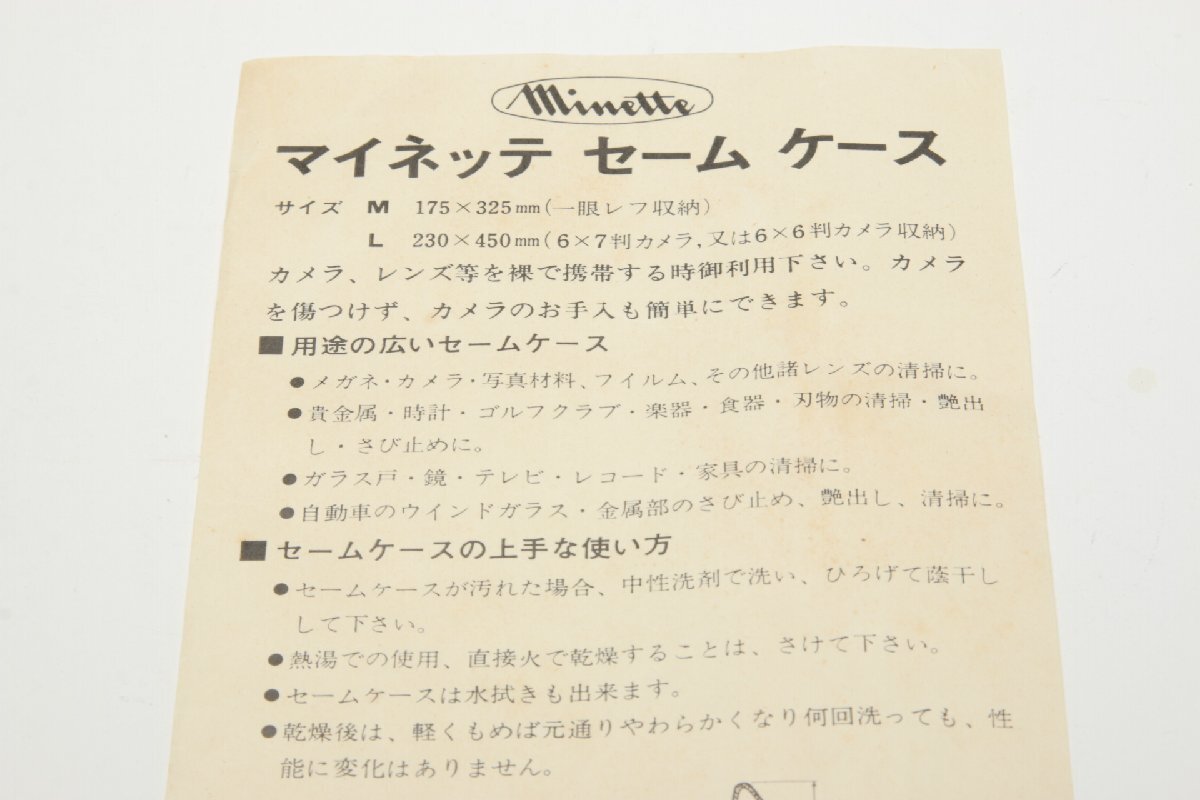 Minette
マイネッテ セーム ケース
サイズ M 175×325mm(一眼レフ収納)
L 230×450mm(6×7判カメラ,又は6×6判カメラ収納)
カメラ、レンズ等を裸で携帯する時御利用下さい。カメラ
を傷つけず、カメラのお手入も簡単にできます。
■用途の広いセームケース
●メガネ・カメラ・写真材料、フイルム、その他諸レンズの清掃に。
●貴金属・時計・ゴルフクラブ・楽器・食器・刃物の清掃・艶出
し・さび止めに。
●ガラス戸・鏡・テレビ・レコード・家具の清掃に。
●自動車のウインドガラス・金属部のさび止め、艶出し、清掃に。
■セームケースの上手な使い方
●セームケースが汚れた場合、中性洗剤で洗い、ひろげて蔭干し
して下さい。
●熱湯での使用、直接火で乾燥することは、さけて下さい。
●セームケースは水拭きも出来ます。
●乾燥後は、軽くもめば元通りやわらかくなり何回洗っても、性
能に変化はありません。